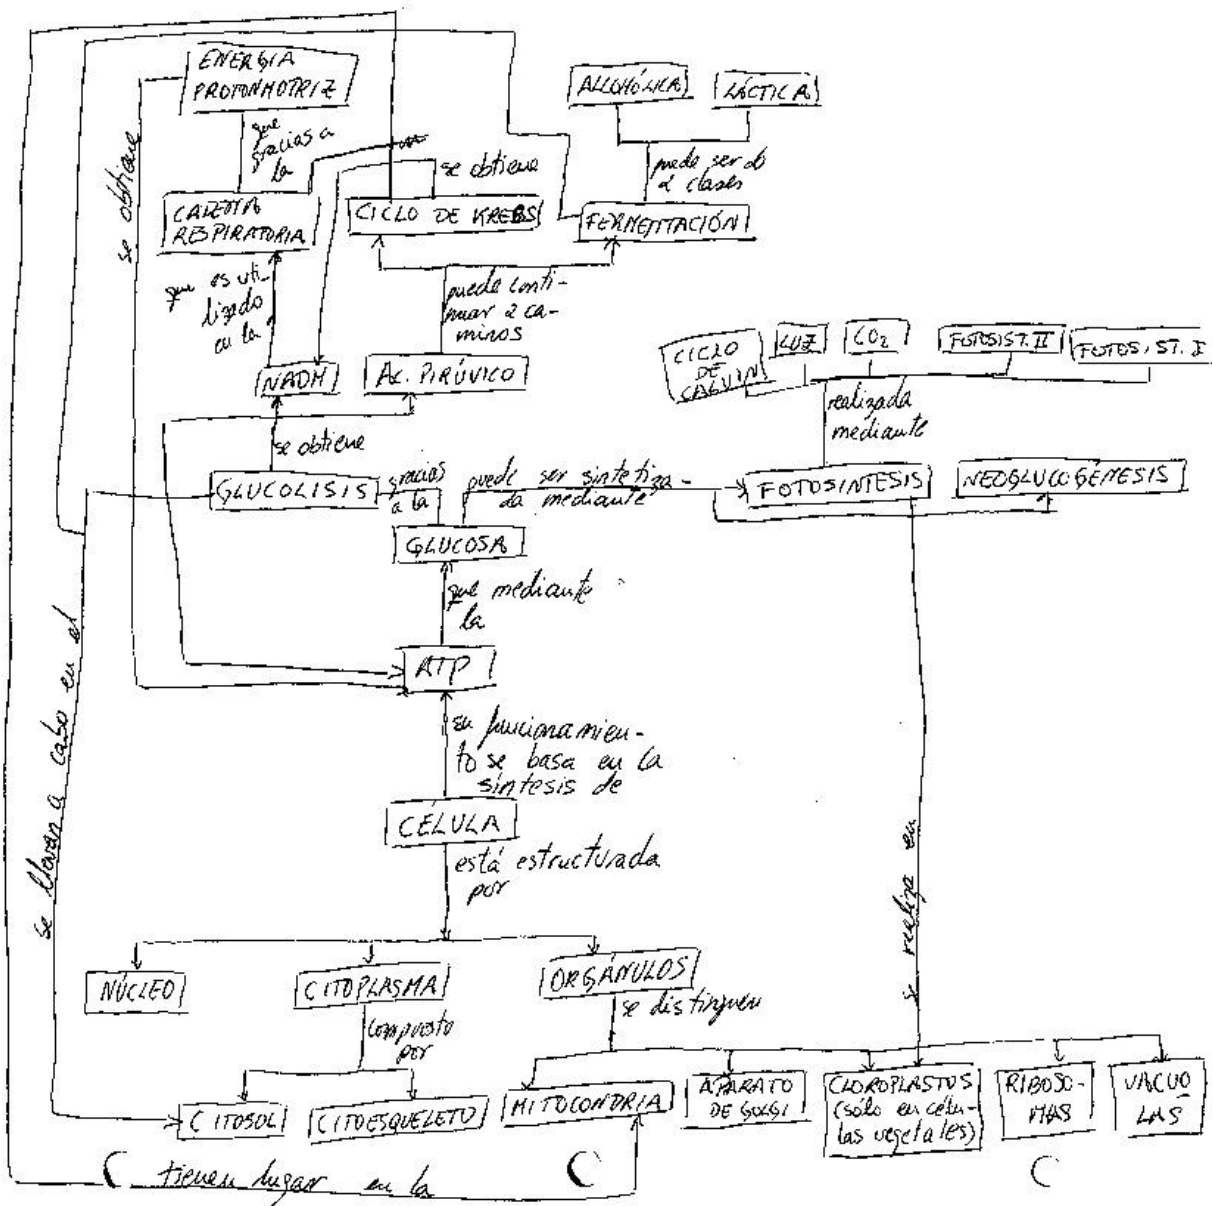 ENERGÍA
PROTONMOTRIZ
ALCOHÓLICA
LÁCTICA
que
gracias a
la
se obtiene
se obtiene
puede ser de
2 clases
CADENA
RESPIRATORIA
CICLO DE KREBS
FERMENTACIÓN
que es uti-
lizado
en la
puede conti-
nuar 2 ca-
minos
CICLO
DE
CALVIN
LUZ
CO₂
FOTOSIST. II
FOTOSIST. I
NADH
AC. PIRÚVICO
realizada
mediante
se obtiene
GLUCOLISIS
gracias
a la
puede ser sintetiza-
da mediante
FOTOSINTESIS
NEOGLUCOGÉNESIS
GLUCOSA
que mediante
la
ATP
su funcionamien-
to se basa en la
síntesis de
CÉLULA
está estructurada
por
se llevan a cabo en el
se realiza en
NÚCLEO
CITOPLASMA
ORGÁNULOS
compuesto
por
se distinguen
CITOSOL
CITOESQUELETO
MITOCONDRIA
APARATO
DE GOLGI
CLOROPLASTOS
(sólo en célu-
las vegetales)
RIBOSO-
MAS
VACUO
LAS
tienen lugar en la